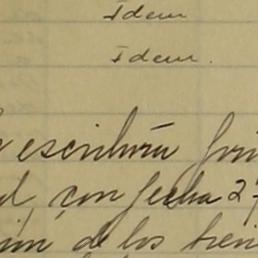 Idem
Idem.
escritura
con fecha 27
de los bien